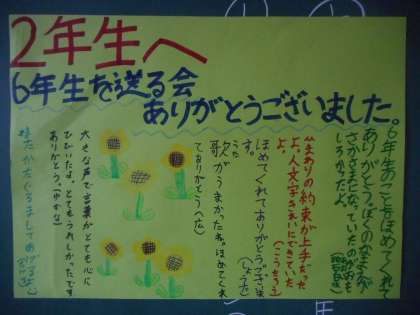 2年生へ
6年生を送る会
ありがとうございました。
6年生のことをほめてくれて
ありがとう。ぼくのなまえが
さかさまになっていたのがおも
しろかったよ。
人文字きれいにできていた
よ。(こうたろう)
ほめてくれてありがとうございま
す。(しょうた)
歌がうまかったね。ほめてくれ
てありがとうへ
大きな声で言葉がとても心に
ひびいたよ。とてもうれしかったです
ありがとう。(ゆかな)
またかたぐるましてあげるよ。